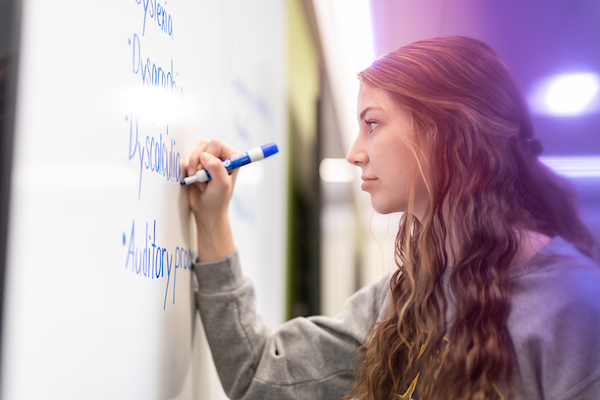 Dyslexia
• Dysgraphia
• Dyscalculia
• Auditory proc